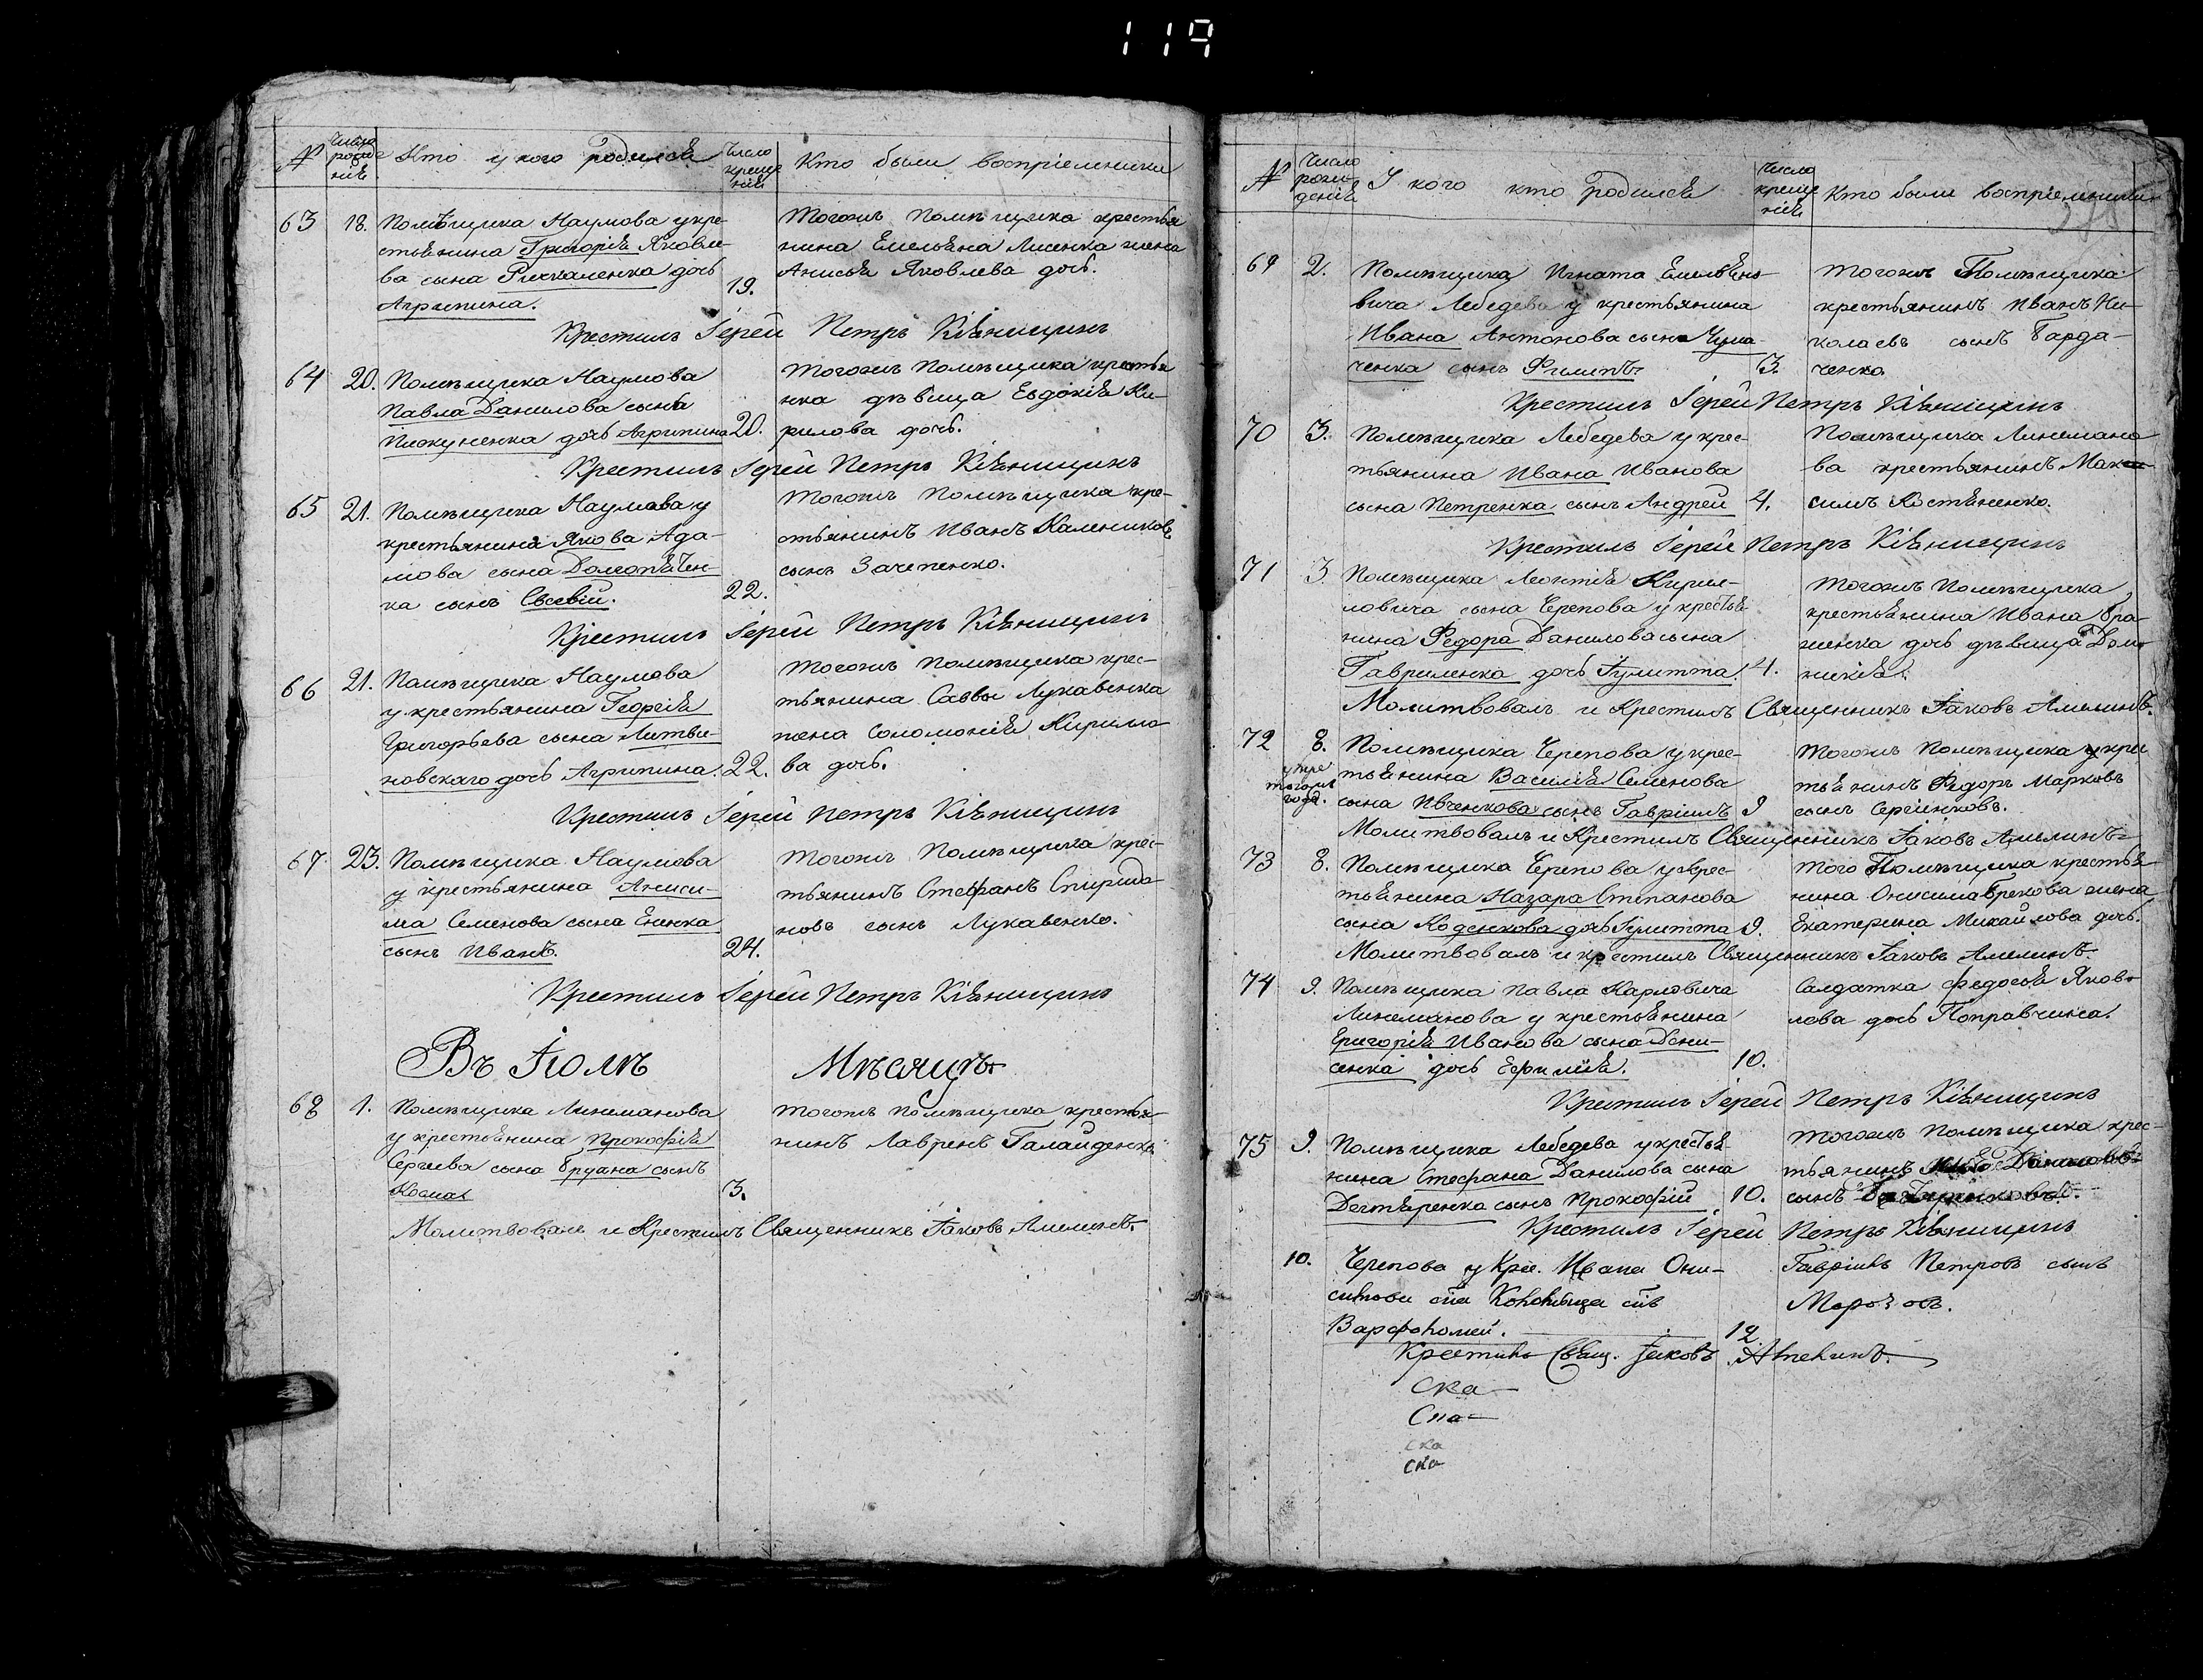 119
№ Число рожде нія Кто у кого родился Число креще нія Кто были воспріемники
63 18. Помѣщика Наумова у кре-
стьянина Григорія Яковле-
ва сына дочь
Агрипина. 19.
Тогожъ помѣщика крестья
нина Емельяна Лисенка жена
Анисья Яковлева дочь.
Крестилъ Іерей Петръ Кіяницынъ
64 20. Помѣщика Наумова
Павла Данилова сына
дочь Агрипина 20.
Тогожъ помѣщика крестья
нка дѣвица Евдокія Ки-
рилова дочь.
Крестилъ Іерей Петръ Кіяницынъ
65 21. Помѣщика Наумова у
крестьянина Якова Ада-
мова сына
ка сынъ Евсевій. 22.
Тогожъ помѣщика кре-
стьянинъ Иванъ Калениковъ
сынъ Зачепенко.
Крестилъ Іерей Петръ Кіяницынъ
66 21. Помѣщика Наумова
у крестьянина Георгія
Григорьева сына Литви-
новскаго дочь Агрипина. 22.
Тогожъ помѣщика крес-
тьянина Саввы Лукавенка
жена Соломонія Кирило
ва дочь.
Крестилъ Іерей Петръ Кіяницынъ
67 23. Помѣщика Наумова
у крестьянина Аниси-
ма Семенова сына Енинка
сынъ Иванъ. 24.
Тогожъ помѣщика крес-
тьянинъ Стефанъ Спиридо-
новъ сынъ Лукавенко.
Крестилъ Іерей Петръ Кіяницынъ
Въ Іюлѣ Мѣсяцѣ
68 1. Помѣщика Линеманова
у крестьянина Прокофія
Сергіева сына сынъ
Косма 3.
Тогожъ помѣщика крестья-
нинъ Лавренъ Галайденко
Молитвовалъ и Крестилъ Священникъ Іаковъ Амелинъ.
№ Число рожденія У кого кто родился Число креще нія Кто были воспріемники
69 2. Помѣщика Игната Емельяно-
вича Лебедева у крестьянина
Ивана Антонова сына Чума-
ченка сынъ Филипъ 3.
Тогожъ Помѣщика
крестьянинъ Иванъ Ни-
колаевъ сынъ Барда-
ченко
Крестилъ Іерей Петръ Кіяницынъ
70 3. Помѣщика Лебедева у крес-
тьянина Ивана Иванова
сына Петренка сынъ Андрей 4.
Помѣщика Линемано
ва крестьянинъ Мак
симъ Костяненко.
Крестилъ Іерей Петръ Кіяницынъ
71 3 Помѣщика Леонтія Кирил-
ловича сына Черепова у крестья
нина Федора Данилова сына
Гавриленка дочь Іулитта. 4.
Тогожъ помѣщика
крестьянина Ивана Бра-
женка дочь дѣвица Дом-
никія.
Молитвовалъ и Крестилъ Священникъ Іаковъ Амелинъ.
72 8. Помѣщика Черепова у крес-
тьянина Василія Семенова
сына Ивченкова сынъ Гавріилъ 9
тогожъ года.
Тогожъ помѣщика у крес
тьянинъ Федоръ Марковъ
сынъ Сергіенковъ.
Молитвовалъ и Крестилъ Священникъ Іаковъ Амелинъ
73 8. Помѣщика Черепова у крес-
тьянина Назара Степанова
сына дочь Іулитта 9.
Того Помѣщика крестья-
нина Онисима жена
Екатерина Михайлова дочь.
Молитвовалъ и крестилъ Священникъ Іаковъ Амелинъ.
74 9. Помѣщика Павла Карловича
Линеманова у крестьянина
Григорія Иванова сына Дени-
сенка дочь Ефимія. 10.
Салдатка Федосья Яков-
лева дочь Поправчина.
Крестилъ Іерей Петръ Кіяницынъ
75 9. Помѣщика Лебедева у крестья-
нина Стефана Данилова сына
Дегтяренка сынъ Прокофій 10.
Тогожъ помѣщика крес-
тьянинъ
сынъ
Крестилъ Іерей Петръ Кіяницынъ
10. Черепова у Крес. Ивана Они-
симова
Варфоломей. 12
Гавріилъ Петровъ сынъ
Морозовъ.
Крестилъ Свящ. Іаковъ Амелинъ.
Ска
Ска
ска
ска